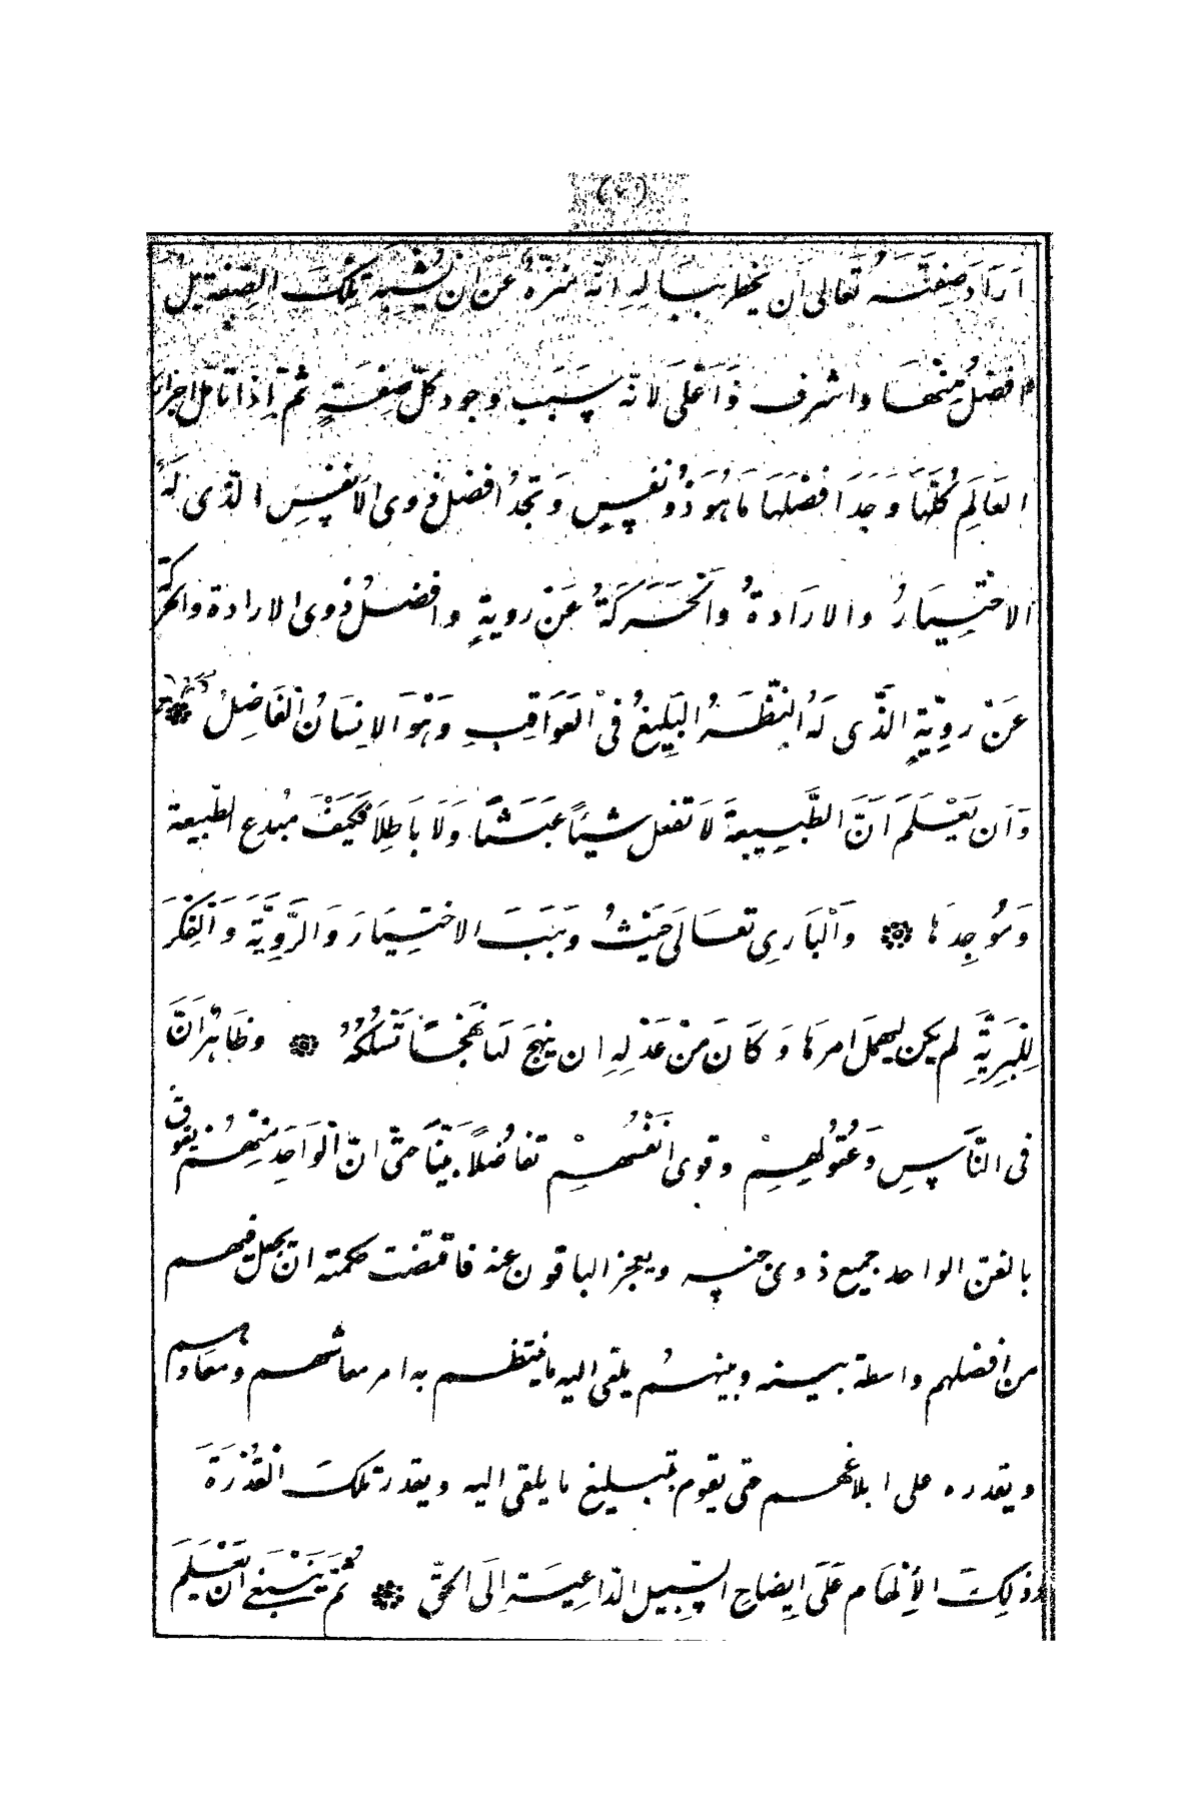 (٧)
اَرَادَ صِفَتَهُ تَعَالَى اَن يخطر ببَالِهِ انّهُ منَزَّهٌ عَنْ ان يُشْبِهَ تِلْكَ الصِّفَةَ بل
افضَلُ مِنْهَا واشرف وَاَعْلَى لانّه سَبَبُ وجود كلّ صِفَةٍ ثمّ اِذَا تامّل اجزاء
العَالَمِ كُلَّهَا وَجَدَ افضَلَهَا مَا هُوَ ذُو نَفْسٍ وَتجدُ افضل ذوى الاَنفسِ الذّى لَهُ
الاختِيَارُ والارَادةُ وَالحَرَكَةُ عَنْ رويةٍ وافضلُ ذوى الارادة والحركة
عَنْ روِيّةٍ الذّى لَهُ النّظَرُ البَلِيغُ فِىْ العَوَاقِبِ وَهْوَ الانِسَانُ الفَاضِلُ
وَاَن يَعْلَمَ اَنَّ الطَّبِيعَةَ لاَ تفعل شيئاً عَبَثًا وَلاَ بَاطِلاً فكَيَفْ مُبدِع الطّبيعة
وَمُوجِدهَا ❁ وَالْبَارِى تعَالَى حَيْثُ وهَبَ الاختِيَارَ وَالرَّوِيَّةَ وَالْفِكْرَ
لِلْبَرِيَّةِ لم يكن ليهملَ امرهَا وَكَانَ مِنْ عَدْلِهِ ان ينهج لهَا نَهْجًا تَسْلُكُهُ ❁ وظَاهِرٌ اَنَّ
فى النَّاسِ وَعُقُولِهِمْ وقوى انفُسِهِمْ تفاضُلاً بيّنًا حتّى انّ الْوَاحِدَ مِنْهُمْ يفوق
بالفنّ الواحد جميع ذوى جنسه ويعجز الباقون عنه فاقتضت حكمته ان يجعل فيهم
من افضلهم واسطة بينه وبينهُم يلقى اليه ما ينتظم به امر معاشهم ومعادهم
ويقدره على ابلاغهم حتى يقوم بتبليغ ما يلقى اليه ويقدر تلك القُدْرَةَ
وذلِكَ الاِلْهَام عَلَى اِيضاحِ السَّبِيل الدّاعِيَة اِلَى الحَقِّ ❁ ثُمَّ يَنْبَغِى ان يَعْلَمَ